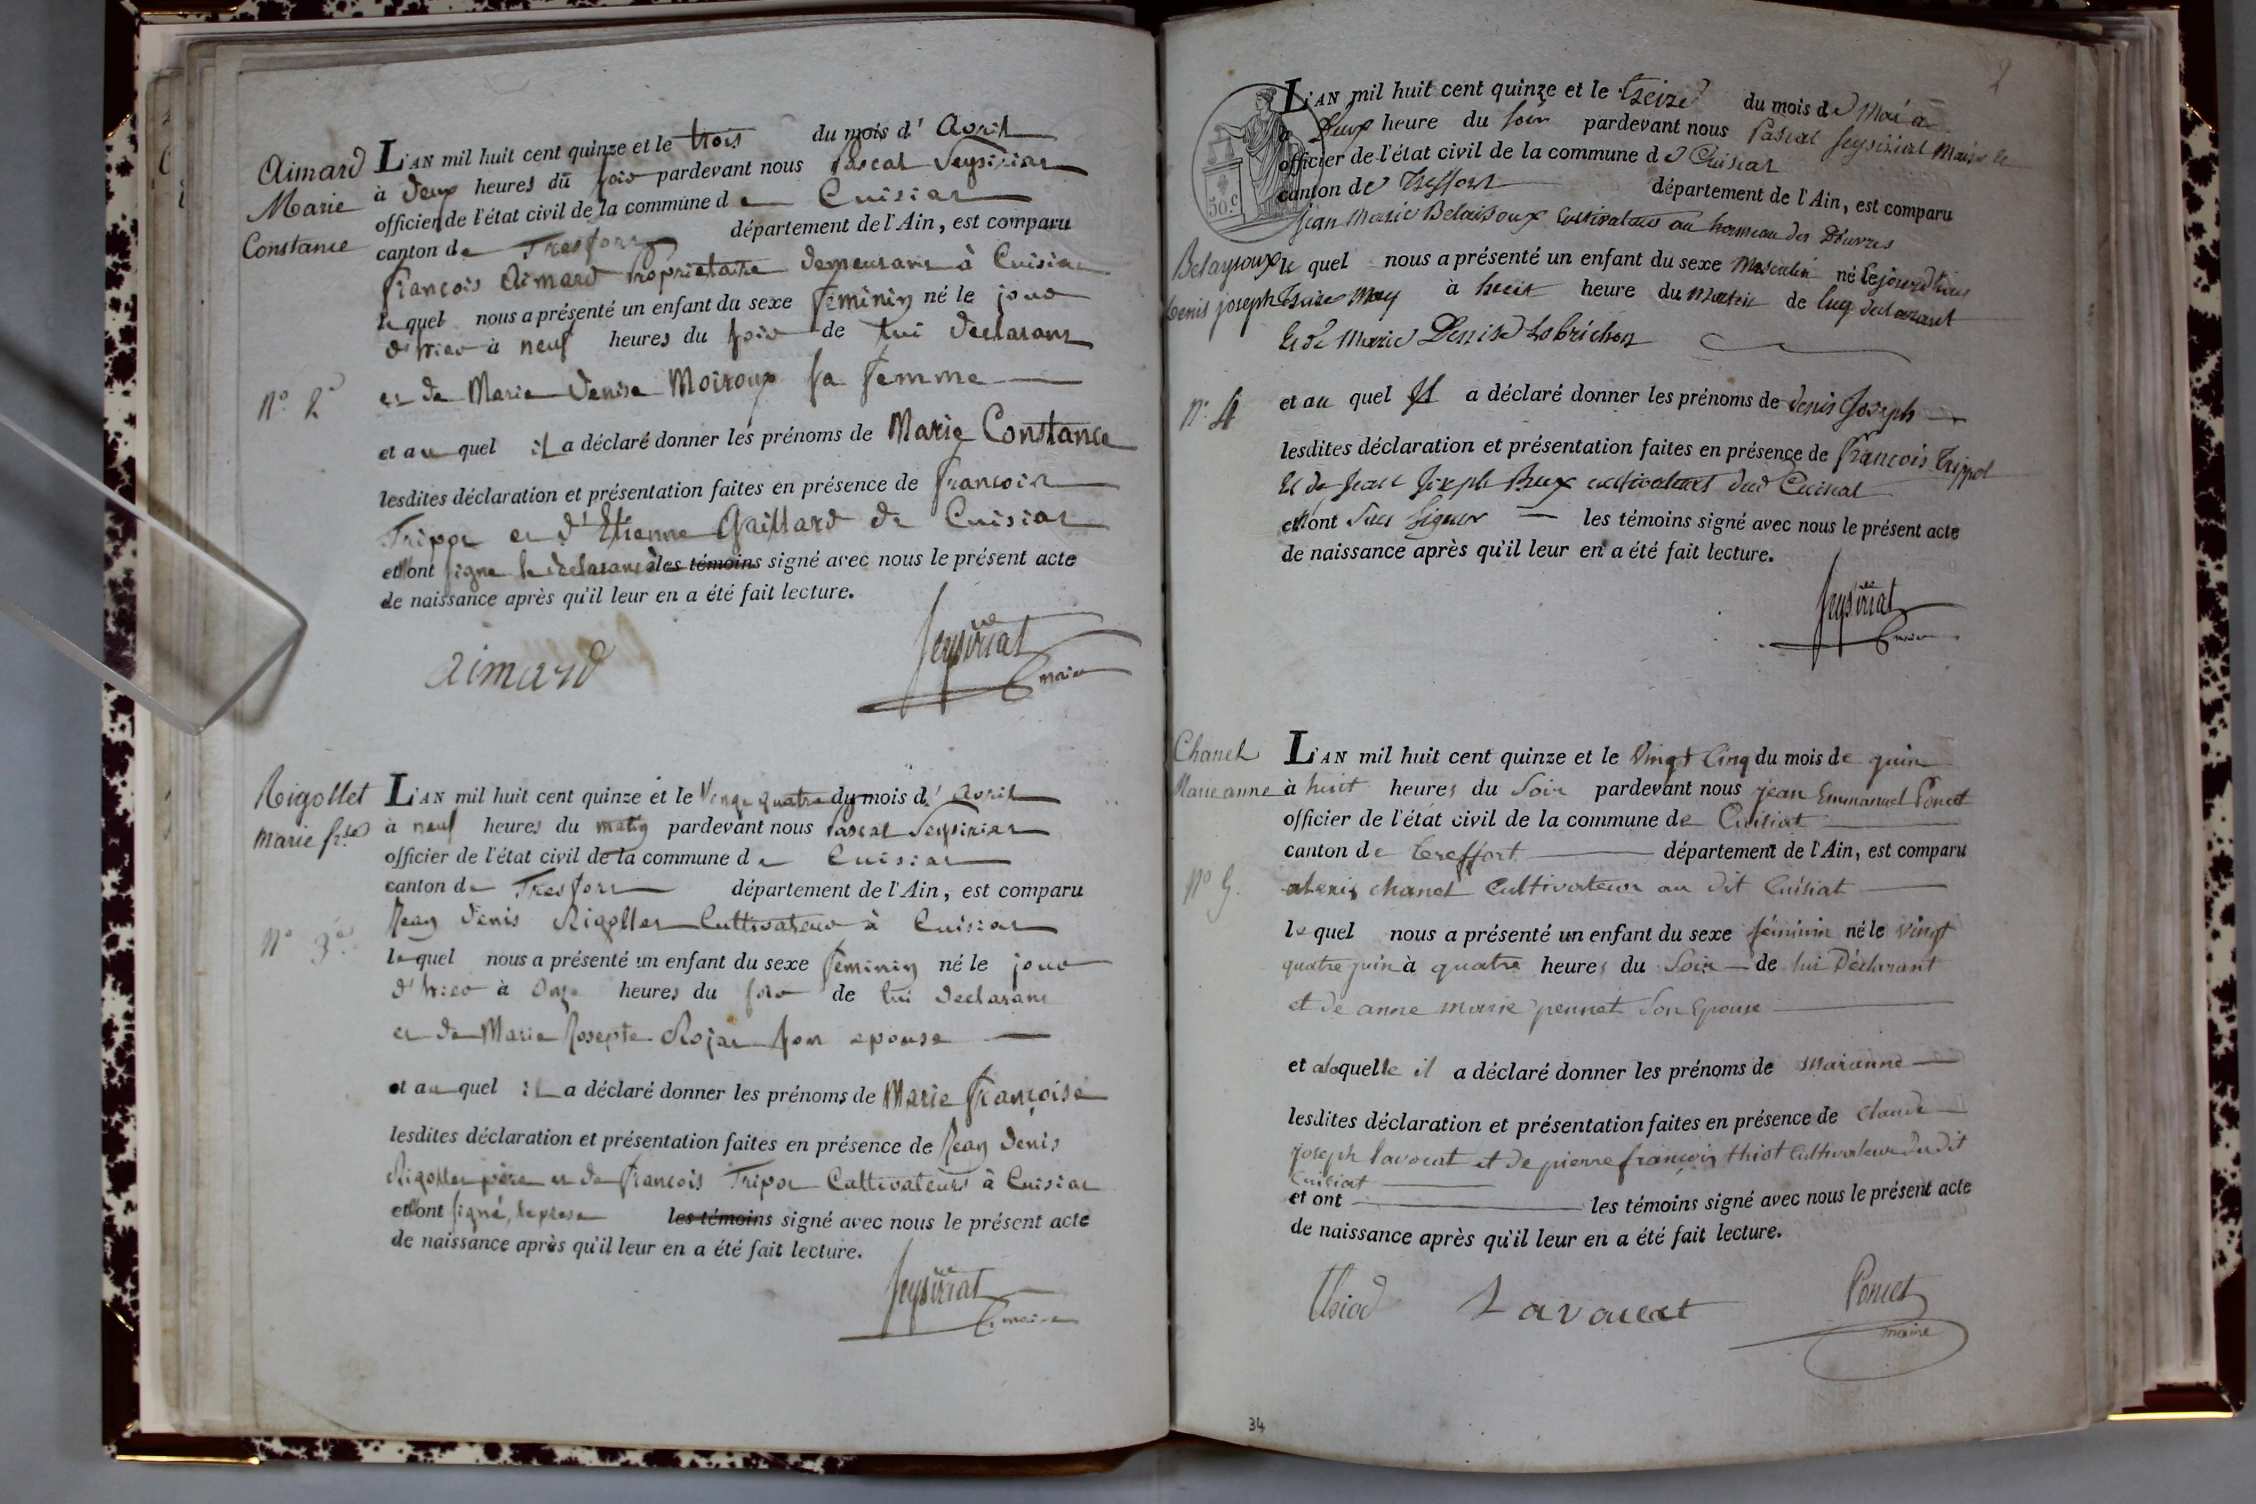 Aimard
Marie
Constance
N.° 2
L'AN mil huit cent quinze et le trois du mois d'avril
à deux heures du soir pardevant nous Pascal Seysiriat
officier de l'état civil de la commune de Cuisiat
canton de Tresfort département de l'Ain, est comparu
françois Aimard Proprietaire demeurant à Cuisiat
lequel nous a présenté un enfant du sexe feminin né le jour
d'hier à neuf heures du soir de lui declarant
et de Marie Denise Moiroux sa femme
et au quel il a déclaré donner les prénoms de Marie Constance
lesdites déclaration et présentation faites en présence de francois
Tripoz et d'Etienne Gaillard de Cuisiat
et ont signé le declarant les témoins signé avec nous le présent acte
de naissance après qu'il leur en a été fait lecture.
Aimard
Seysiriat
maire
Rigollet
Marie fr.se
N° 3
L'AN mil huit cent quinze et le Vingt quatre du mois d'avril
à neuf heures du matin pardevant nous Pascal Seysiriat
officier de l'état civil de la commune de Cuisiat
canton de Tresfort département de l'Ain, est comparu
Jean Denis Rigollet Cultivateur à Cuisiat
lequel nous a présenté un enfant du sexe feminin né le jour
d'hier à Onze heures du soir de lui declarant
et de Marie Josepte Rojat son epouse
et au quel il a déclaré donner les prénoms de Marie françoise
lesdites déclaration et présentation faites en présence de Jean Denis
Rigollet père et de francois Tripoz Cultivateurs à Cuisiat
et ont signé, le les témoins signé avec nous le présent acte
de naissance après qu'il leur en a été fait lecture.
Seysiriat
maire
2
50.c
Belaysoux
Denis joseph
N.° 4
L'AN mil huit cent quinze et le treize du mois de Mai a
à Deux heure du soir pardevant nous Pascal Seysiriat Maire
officier de l'état civil de la commune de Cuisiat
canton de Treffort département de l'Ain, est comparu
Jean Marie Belaisoux Cultivateur au hameau des
le quel nous a présenté un enfant du sexe Masculin né le jourdhui
treize May à huit heure du Matin de luy declarant
et de Marie Denise Lobrichon
et au quel Il a déclaré donner les prénoms de denis Joseph
lesdites déclaration et présentation faites en présence de François Trippoz
et de Jean Joseph cultivateurs dud Cuisiat
et ont signer les témoins signé avec nous le présent acte
de naissance après qu'il leur en a été fait lecture.
Seysiriat
maire
Chanel
Marie anne
N° 5.
L'AN mil huit cent quinze et le vingt Cinq du mois de juin
à huit heures du Soir pardevant nous jean Emmanuel Poncet
officier de l'état civil de la commune de Cuisiat
canton de treffort département de l'Ain, est comparu
alexis chanel Cultivateur au dit Cuisiat
le quel nous a présenté un enfant du sexe féminin né le vingt
quatre juin à quatre heures du Soir de lui Déclarant
et de anne marie pennet Son Epouse
et alaquelle il a déclaré donner les prénoms de marianne
lesdites déclaration et présentation faites en présence de Claude
joseph lavocat et de pierre françois thiot Cultivateur du dit
Cuisiat
et ont les témoins signé avec nous le présent acte
de naissance après qu'il leur en a été fait lecture.
Thiod Lavocat Poncet
maire
34